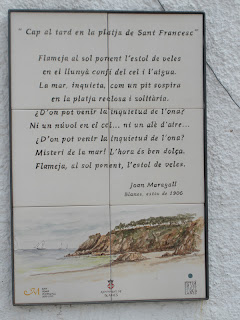 " Cap al tard en la platja de Sant Francesc"
Flameja al sol ponent l'estol de veles
en el llunyà confí del cel i l'aigua.
La mar, inquieta, com un pit sospira
en la platja reclosa i solitària.
¿D'on pot venir la inquietud de l'ona?
Ni un núvol en el cel... ni un alè d'aire...
¿D'on pot venir la inquietud de l'ona?
Misteri de la mar! L'hora és ben dolça.
Flameja, al sol ponent, l'estol de veles.
Joan Maragall
Blanes, estiu de 1906